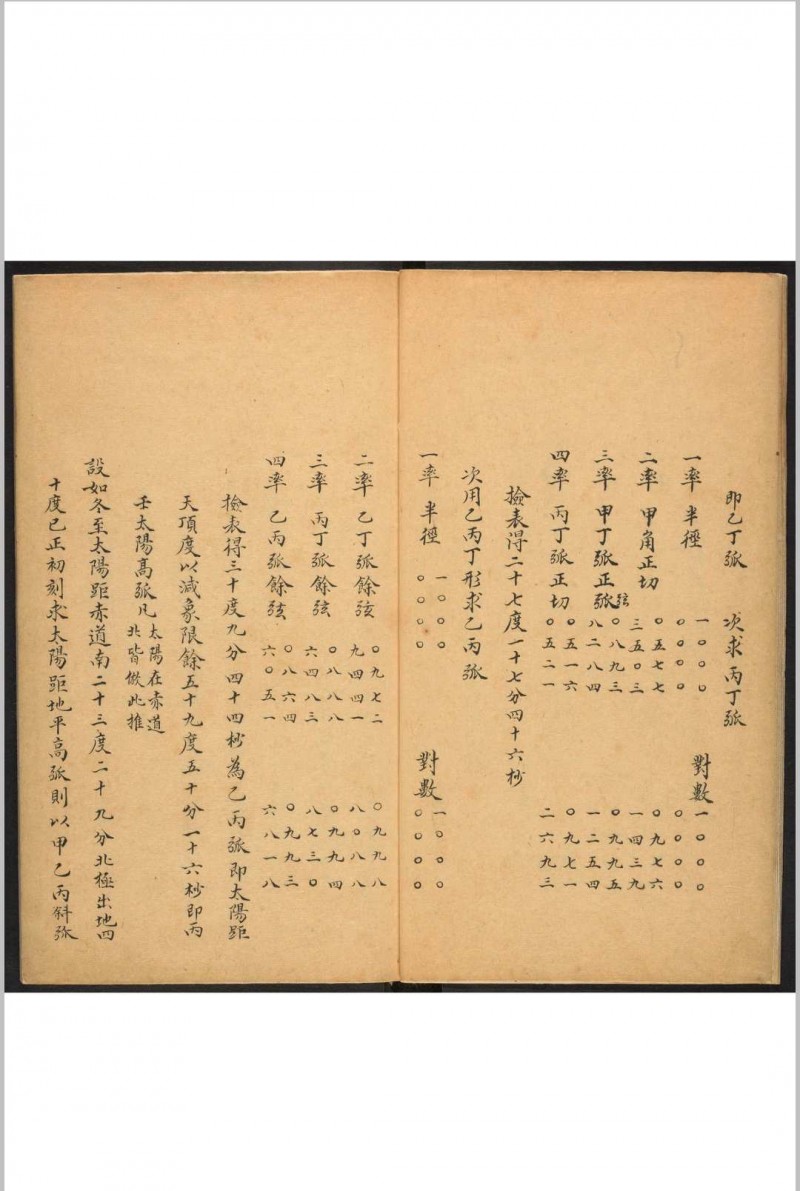 即乙丁弧　次求丙丁弧
一率　半徑　一〇〇〇〇〇〇〇　對數　一〇〇〇〇〇〇〇
二率　甲角正切　〇五七七三五〇三　〇九七六一四三九
三率　甲丁弧正弧弦　〇八九三八二八四　〇九九五一二五四
四率　丙丁弧正切　〇五一六〇五二一　〇九七一二六九三
撿表得二十七度一十七分四十六杪
次用乙丙丁形求乙丙弧
一率　半徑　一〇〇〇〇〇〇〇　對數　一〇〇〇〇〇〇〇
二率　乙丁弧餘弦　〇九七二九四四一　〇九九八八〇八八
三率　丙丁弧餘弦　〇八八八六四八三　〇九九四八七三〇
四率　乙丙弧餘弦　〇八六四六〇五一　〇九九三六八一八
撿表得三十度九分四十四杪為乙丙弧即太陽距
天頂度以減象限餘五十九度五十分一十六杪即丙
壬太陽高弧凡太陽在赤道北皆倣此推
設如冬至太陽距赤道南二十三度二十九分北極出地四
十度已正初刻求太陽距地平高弧則以甲乙丙斜弧